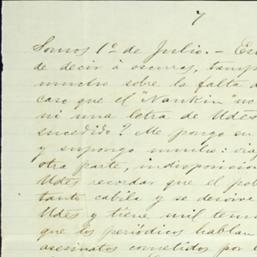 7
Somos 1º de Julio. - Es
de decir à oscuras, tamp
mucho sobre la falta d
caso que el "Nankin" no
ni una letra de Udes
sucedido? Me pongo en
y supongo mucho: via
otra parte, indisposicio
Udes recordar que el pob
tanto cabila y se desvive
Udes y tiene mil temo
que los periódicos hablan
asesinatos cometidos por e